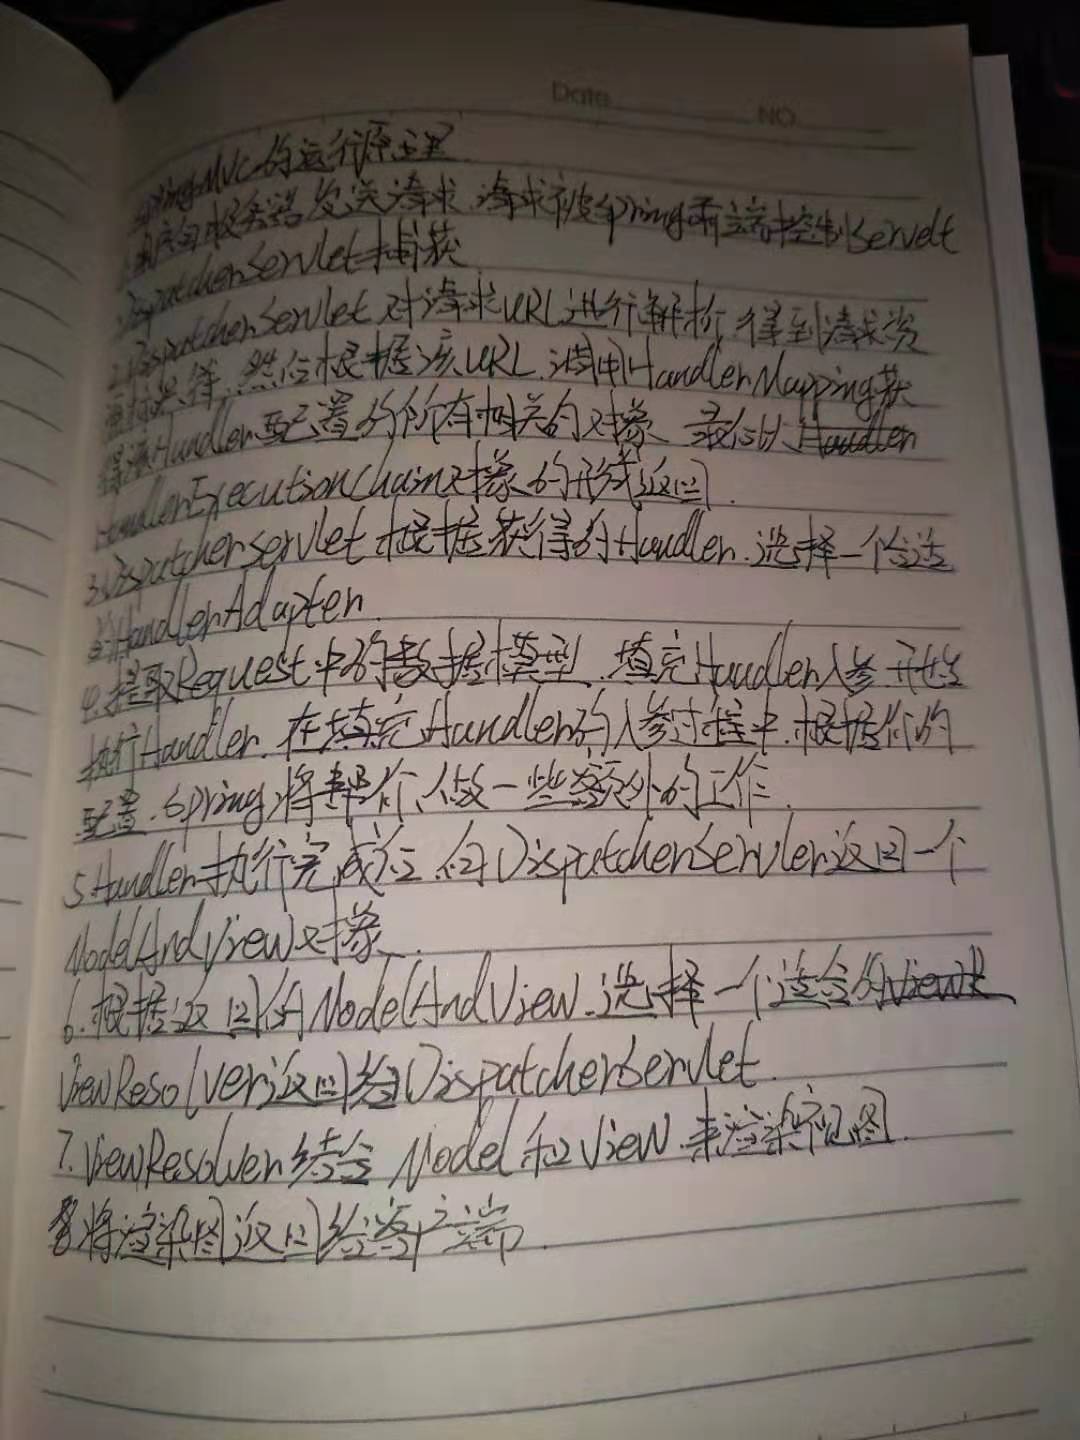 Date NO
SpringMVC的运行原理
1.用户向服务器发送请求,请求被Spring前端控制Servelt
DispatcherServlet捕获
2.DispatcherServlet对请求URL进行解析,得到请求资
源标识符,然后根据该URL,调用HandlerMapping获
得该Handler配置的所有相关的对象,最后以Handler
HandlerExecutionChain对象的形式返回.
3.DispatcherServlet根据获得的Handler.选择一个合适
的HandlerAdapter.
4.提取Request中的数据模型,填充Handler入参,开始
执行Handler.在填充Handler的入参过程中,根据你的
配置.Spring将帮你做一些额外的工作.
5.Handler执行完成后,向DispatcherServler返回一个
ModelAndView对象.
6.根据返回的ModelAndView.选择一个适合的ViewR
ViewResolver返回给DispatcherServlet.
7.ViewResolver结合Model和View.来渲染视图.
8将渲染图返回给客户端.